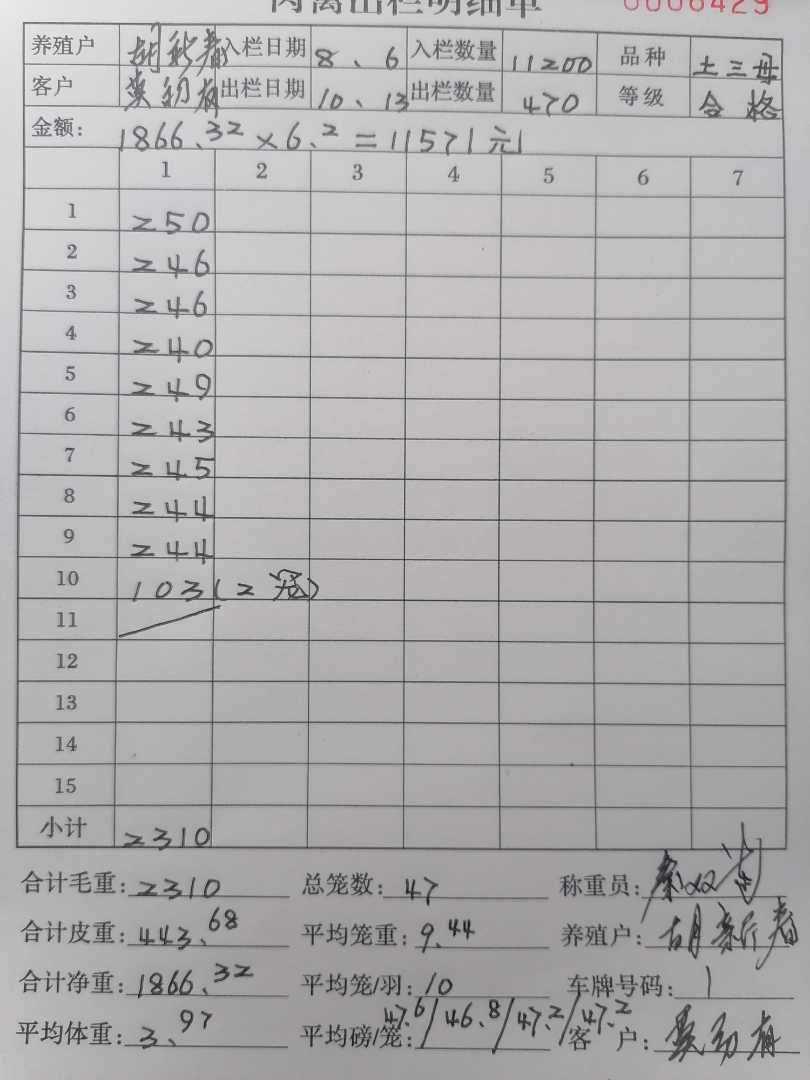 肉禽出栏明细单 0006429
养殖户 入栏日期 8、6 入栏数量 11200 品种 土三母
客户 出栏日期 10、13 出栏数量 470 等级 合格
金额: 1866.32×6.2=11571元
1 2 3 4 5 6 7
1 250
2 246
3 246
4 240
5 249
6 243
7 245
8 244
9 244
10 103(2笼)
11
12
13
14
15
小计 2310
合计毛重: 2310 总笼数: 47 称重员:
合计皮重: 443.68 平均笼重: 9.44 养殖户:
合计净重: 1866.32 平均笼/羽: 10 车牌号码:
平均体重: 3.97 平均磅/笼: 47.6/46.8/47.2/47.2 客户: